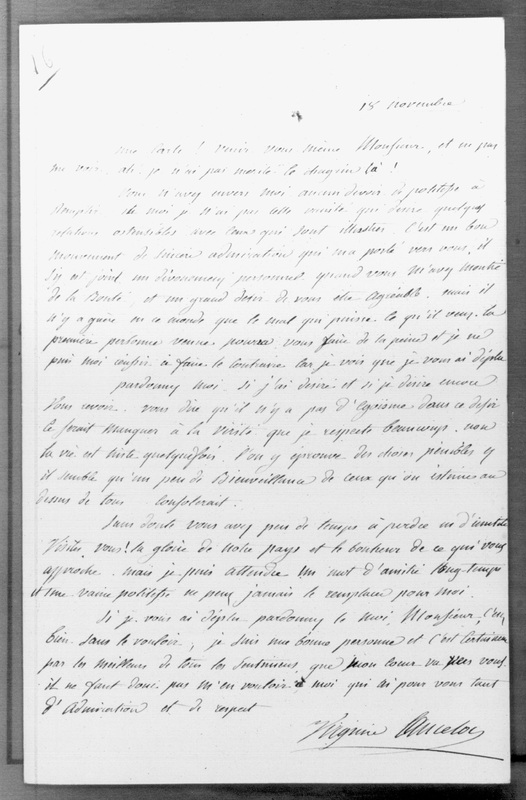 16
18 novembre
une carte ! venir vous même Monsieur, et ne pas
me voir. ah ! je n'ai pas mérité le chagrin là !
vous n'avez envers moi aucun devoir de politesse à
remplir. et moi je n'ai pas cette vanité qui désire quelques
relations ostensibles avec ceux qui sont illustres. C'est un bon
mouvement de sincère admiration qui m'a porté vers vous, il
s'y est joint un dévouement personnel quand vous m'avez montré
de la Bonté, et un grand désir de vous être agréable. mais il
n'y a guère en ce monde que le mal qui puisse ce qu'il veut. la
première personne venue pourra vous faire de la peine et je ne
puis moi réussir à faire le contraire car je vois que je vous ai déplu
pardonnez moi. si j'ai désiré et si je désire encore
vous revoir. vous dire qu'il n'y a pas d'égoïsme dans ce désir
ce serait manquer à la vérité que je respecte beaucoup. non
la vie est triste quelquefois. l'on y éprouve des choses pénibles et
il semble qu'un peu de Bienveillance de ceux qu'on estime au
dessus de tous consolerait.
Sans doute vous avez peu de temps à perdre en d'inutiles
visites, vous ! la gloire de notre pays et le bonheur de ce qui vous
approche. mais je puis attendre un mot d'amitié long-temps
et une vaine politesse ne peut jamais le remplacer pour moi.
Si je vous ai déplu pardonnez le moi, Monsieur, c'est
bien sans le vouloir, je suis une bonne personne et c'est certainement
par les meilleurs de tous les sentiments, que mon cœur va vers vous.
il ne faut donc pas m'en vouloir à moi qui ai pour vous tant
d'admiration et de respect
Virginie Ancelot